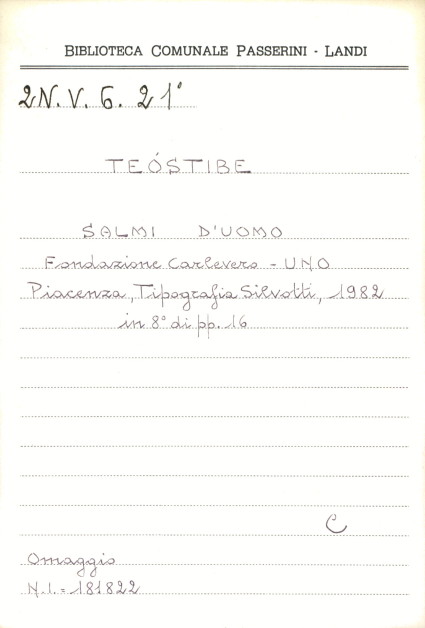 BIBLIOTECA COMUNALE PASSERINI - LANDI
2N. V. G. 21°
TEÓSTIBE
SALMI D'UOMO
Fondazione Carlevero - UNO
Piacenza, Tipografia Silvotti, 1982
in 8° di pp. 16
C
Omaggio
N.I. = 181822